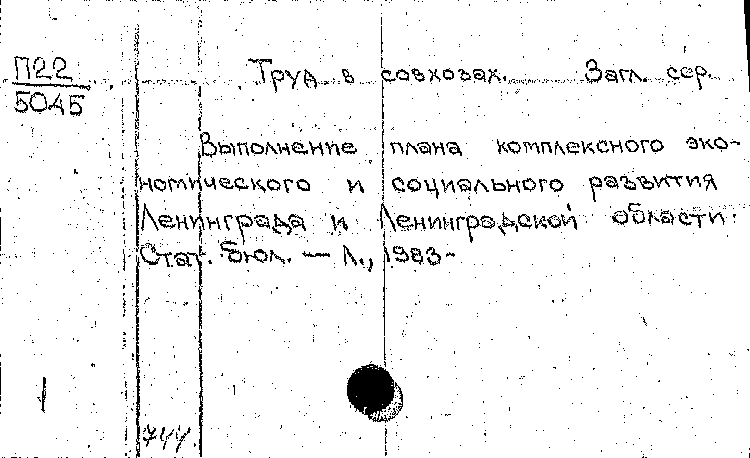 П22
5045
Труд в совхозах. Загл. сер.
Выполнение плана комплексного эко-
номического и социального развития
Ленинграда и Ленинградской области:
Стат. бюл. — Л., 1983-
744.